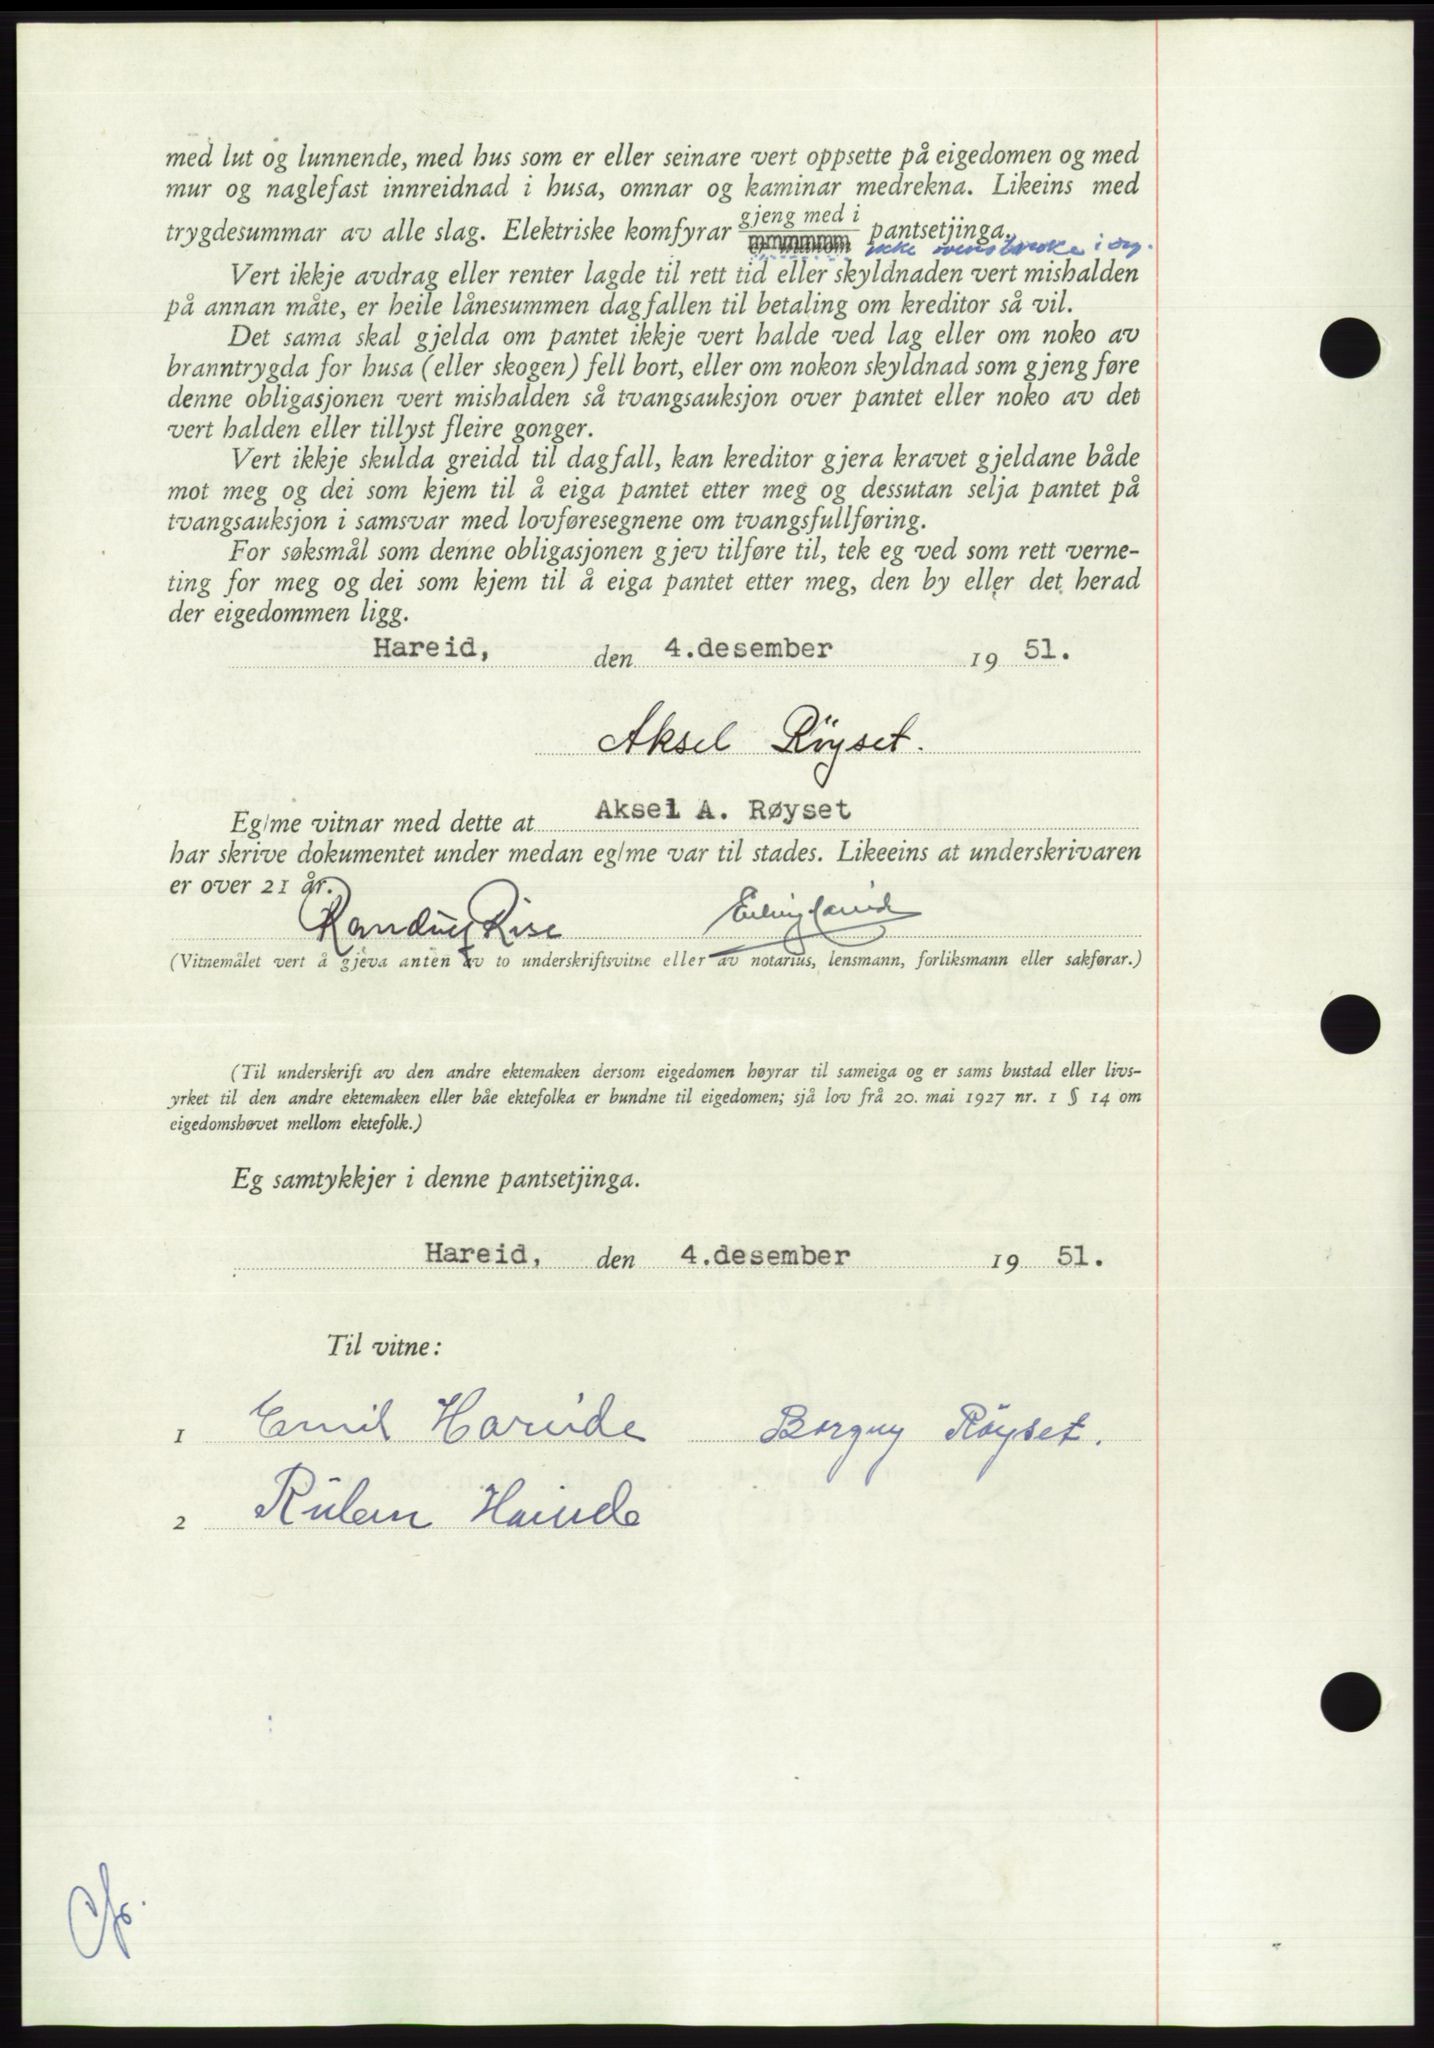 med lut og lunnende, med hus som er eller seinare vert oppsette på eigedomen og med
mur og naglefast innreidnad i husa, omnar og kaminar medrekna. Likeins med
trygdesummar av alle slag. Elektriske komfyrar gjeng med i pantsetjinga.
ikke i org.
Vert ikkje avdrag eller renter lagde til rett tid eller skyldnaden vert mishalden
på annan måte, er heile lånesummen dagfallen til betaling om kreditor så vil.
Det sama skal gjelda om pantet ikkje vert halde ved lag eller om noko av
branntrygda for husa (eller skogen) fell bort, eller om nokon skyldnad som gjeng føre
denne obligasjonen vert mishalden så tvangsauksjon over pantet eller noko av det
vert halden eller tillyst fleire gonger.
Vert ikkje skulda greidd til dagfall, kan kreditor gjera kravet gjeldane både
mot meg og dei som kjem til å eiga pantet etter meg og dessutan selja pantet på
tvangsauksjon i samsvar med lovføresegnene om tvangsfullføring.
For søksmål som denne obligasjonen gjev tilføre til, tek eg ved som rett verne-
ting for meg og dei som kjem til å eiga pantet etter meg, den by eller det herad
der eigedommen ligg.
Hareid, den 4.desember 19 51.
Aksel Røyset.
Eg/me vitnar med dette at Aksel A. Røyset
har skrive dokumentet under medan eg/me var til stades. Likeeins at underskrivaren
er over 21 år.
Randüg Rise
(Vitnemålet vert å gjeva anten av to underskriftsvitne eller av notarius, lensmann, forliksmann eller sakførar.)
(Til underskrift av den andre ektemaken dersom eigedomen høyrar til sameiga og er sams bustad eller livs-
yrket til den andre ektemaken eller båe ektefolka er bundne til eigedomen; sjå lov frå 20. mai 1927 nr. 1 § 14 om
eigedomshøvet mellom ektefolk.)
Eg samtykkjer i denne pantsetjinga.
Hareid, den 4.desember 19 51.
Til vitne:
1 Emil Hareide Borgny Røyset.
2 Hareide